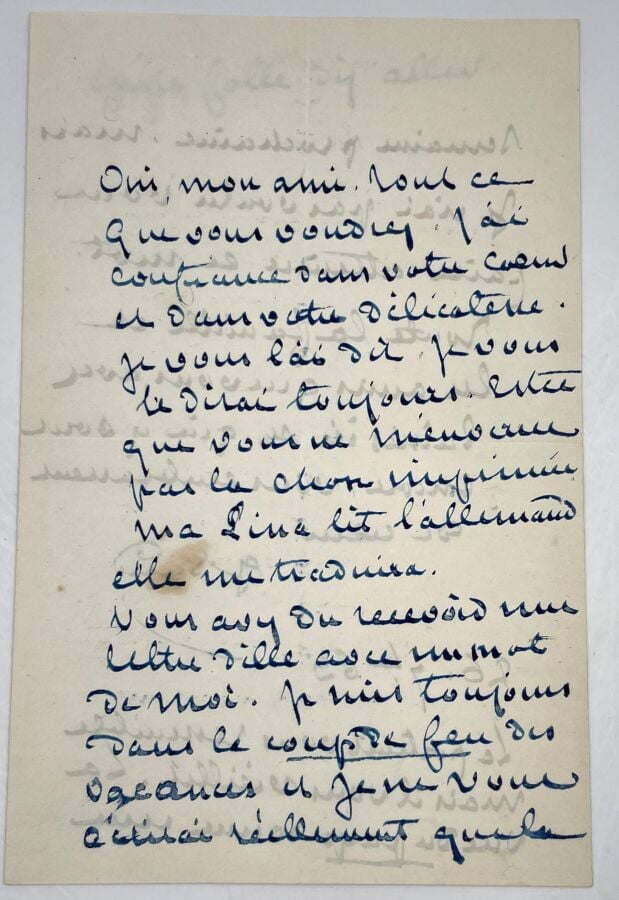 Oui, mon ami. tout ce
que vous voudrez. J'ai
confiance dans votre coeur
et dans votre délicatesse.
je vous l'ai dit, je vous
le dirai toujours. Est ce
que vous ne m'enverrez
pas la chose imprimée
ma Lina lit l'allemand
elle me traduira.
Vous avez du recevoir une
lettre d'elle avec un mot
de moi. Je suis toujours
dans le coup de feu des
vacances et je ne vous
écrirai réellement que la